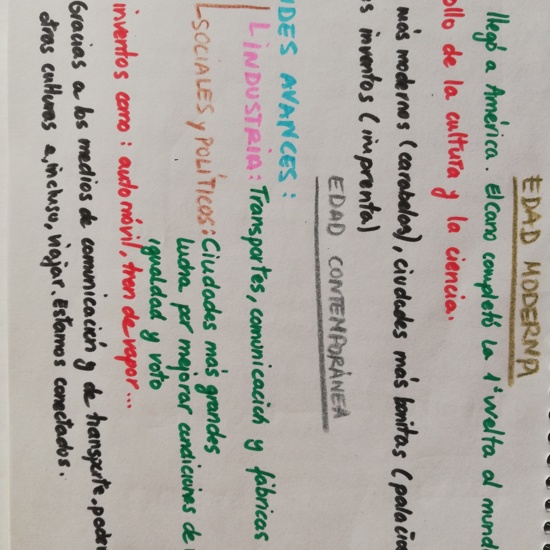 EDAD MODERNA
llegó a América. Elcano completó la 1ª vuelta al mund
ollo de la cultura y la ciencia.
más modernos (carabelas), ciudades más bonitas (palacio
s inventos (imprenta)
EDAD CONTEMPORÁNEA
NDES AVANCES:
INDUSTRIA: Transportes, comunicación y fábricas
SOCIALES y POLÍTICOS: Ciudades más grandes
lucha por mejorar condiciones de
igualdad y voto
inventos como: automóvil, tren de vapor...
Gracias a los medios de comunicación y de transporte, pode
otras culturas e, incluso, viajar. Estamos conectados.